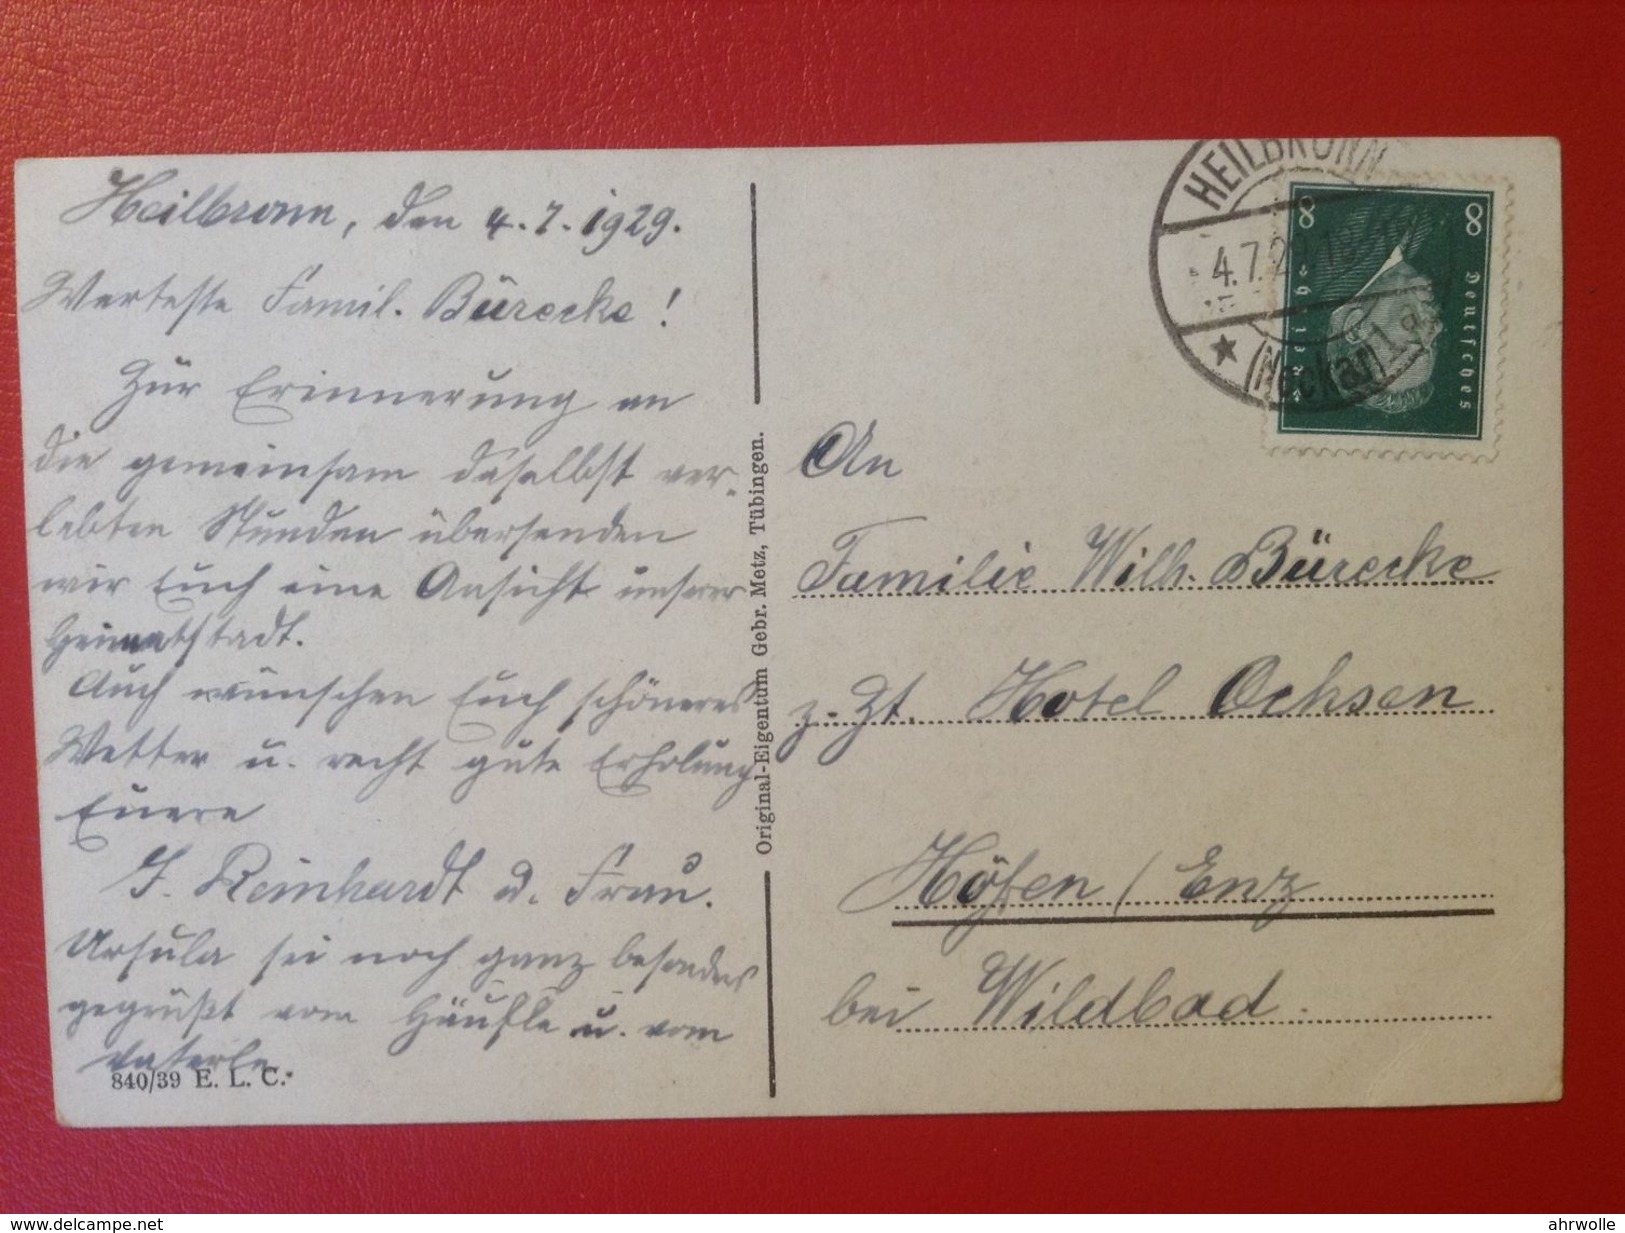 Heilbronn, den 4.7.1929.
Werteste Famil. Bürecke!
Zur Erinnerung an
die gemeinsam daselbst ver-
lebten Stunden übersenden
wir Euch eine Ansicht unserer
Heimatstadt.
Auch wünschen Euch schöneres
Wetter u. recht gute Erholung
Euere
J. Reinhardt u. Frau.
Ursula sei noch ganz besonders
gegrüßt vom Häufle u. vom
Vaterle.
840/39 E. L. C.
Original-Eigentum Gebr. Metz, Tübingen.
HEILBRONN
4.7.29
(Neckar) 1
8 8
Deutsches
Reich
An
Familie Wilh. Bürecke
z. Zt. Hotel Ochsen
Höfen / Enz
bei Wildbad.
www.delcampe.net
ahrwolle